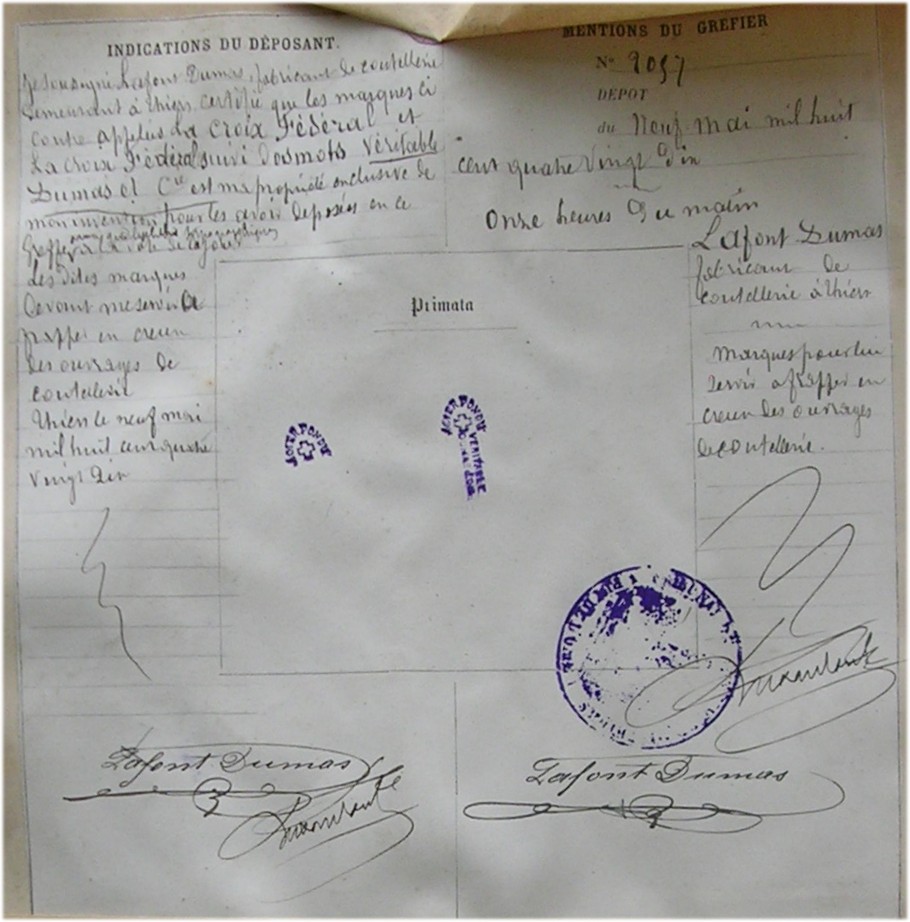 INDICATIONS DU DÉPOSANT.
Je soussigné Lafont Dumas, fabricant de coutellerie
demeurant à thiers, certifie que les marques ci
contre appelées La croix Fédéral et
La croix Fédéral suivi des mots Véritable
Dumas et Cie est ma propriété exclusive de
mon invention pour les avoir déposées en ce
Greffe
Les dites marques
devant me servir a
frapper en creux
des ouvrages de
coutellerie
Thiers le neuf mai
mil huit cent quatre
vingt dix
MENTIONS DU GREFIER
No 2057
DEPOT
du Neuf mai mil huit
cent quatre vingt dix
Onze heures du matin
Lafont Dumas
fabricant de
coutellerie à thiers
marques pour lui
servir a frapper en
creux des ouvrages
de coutellerie.
Primata
ACIER FONDU
ACIER FONDU
VERITABLE
Lafont Dumas
Lafont Dumas